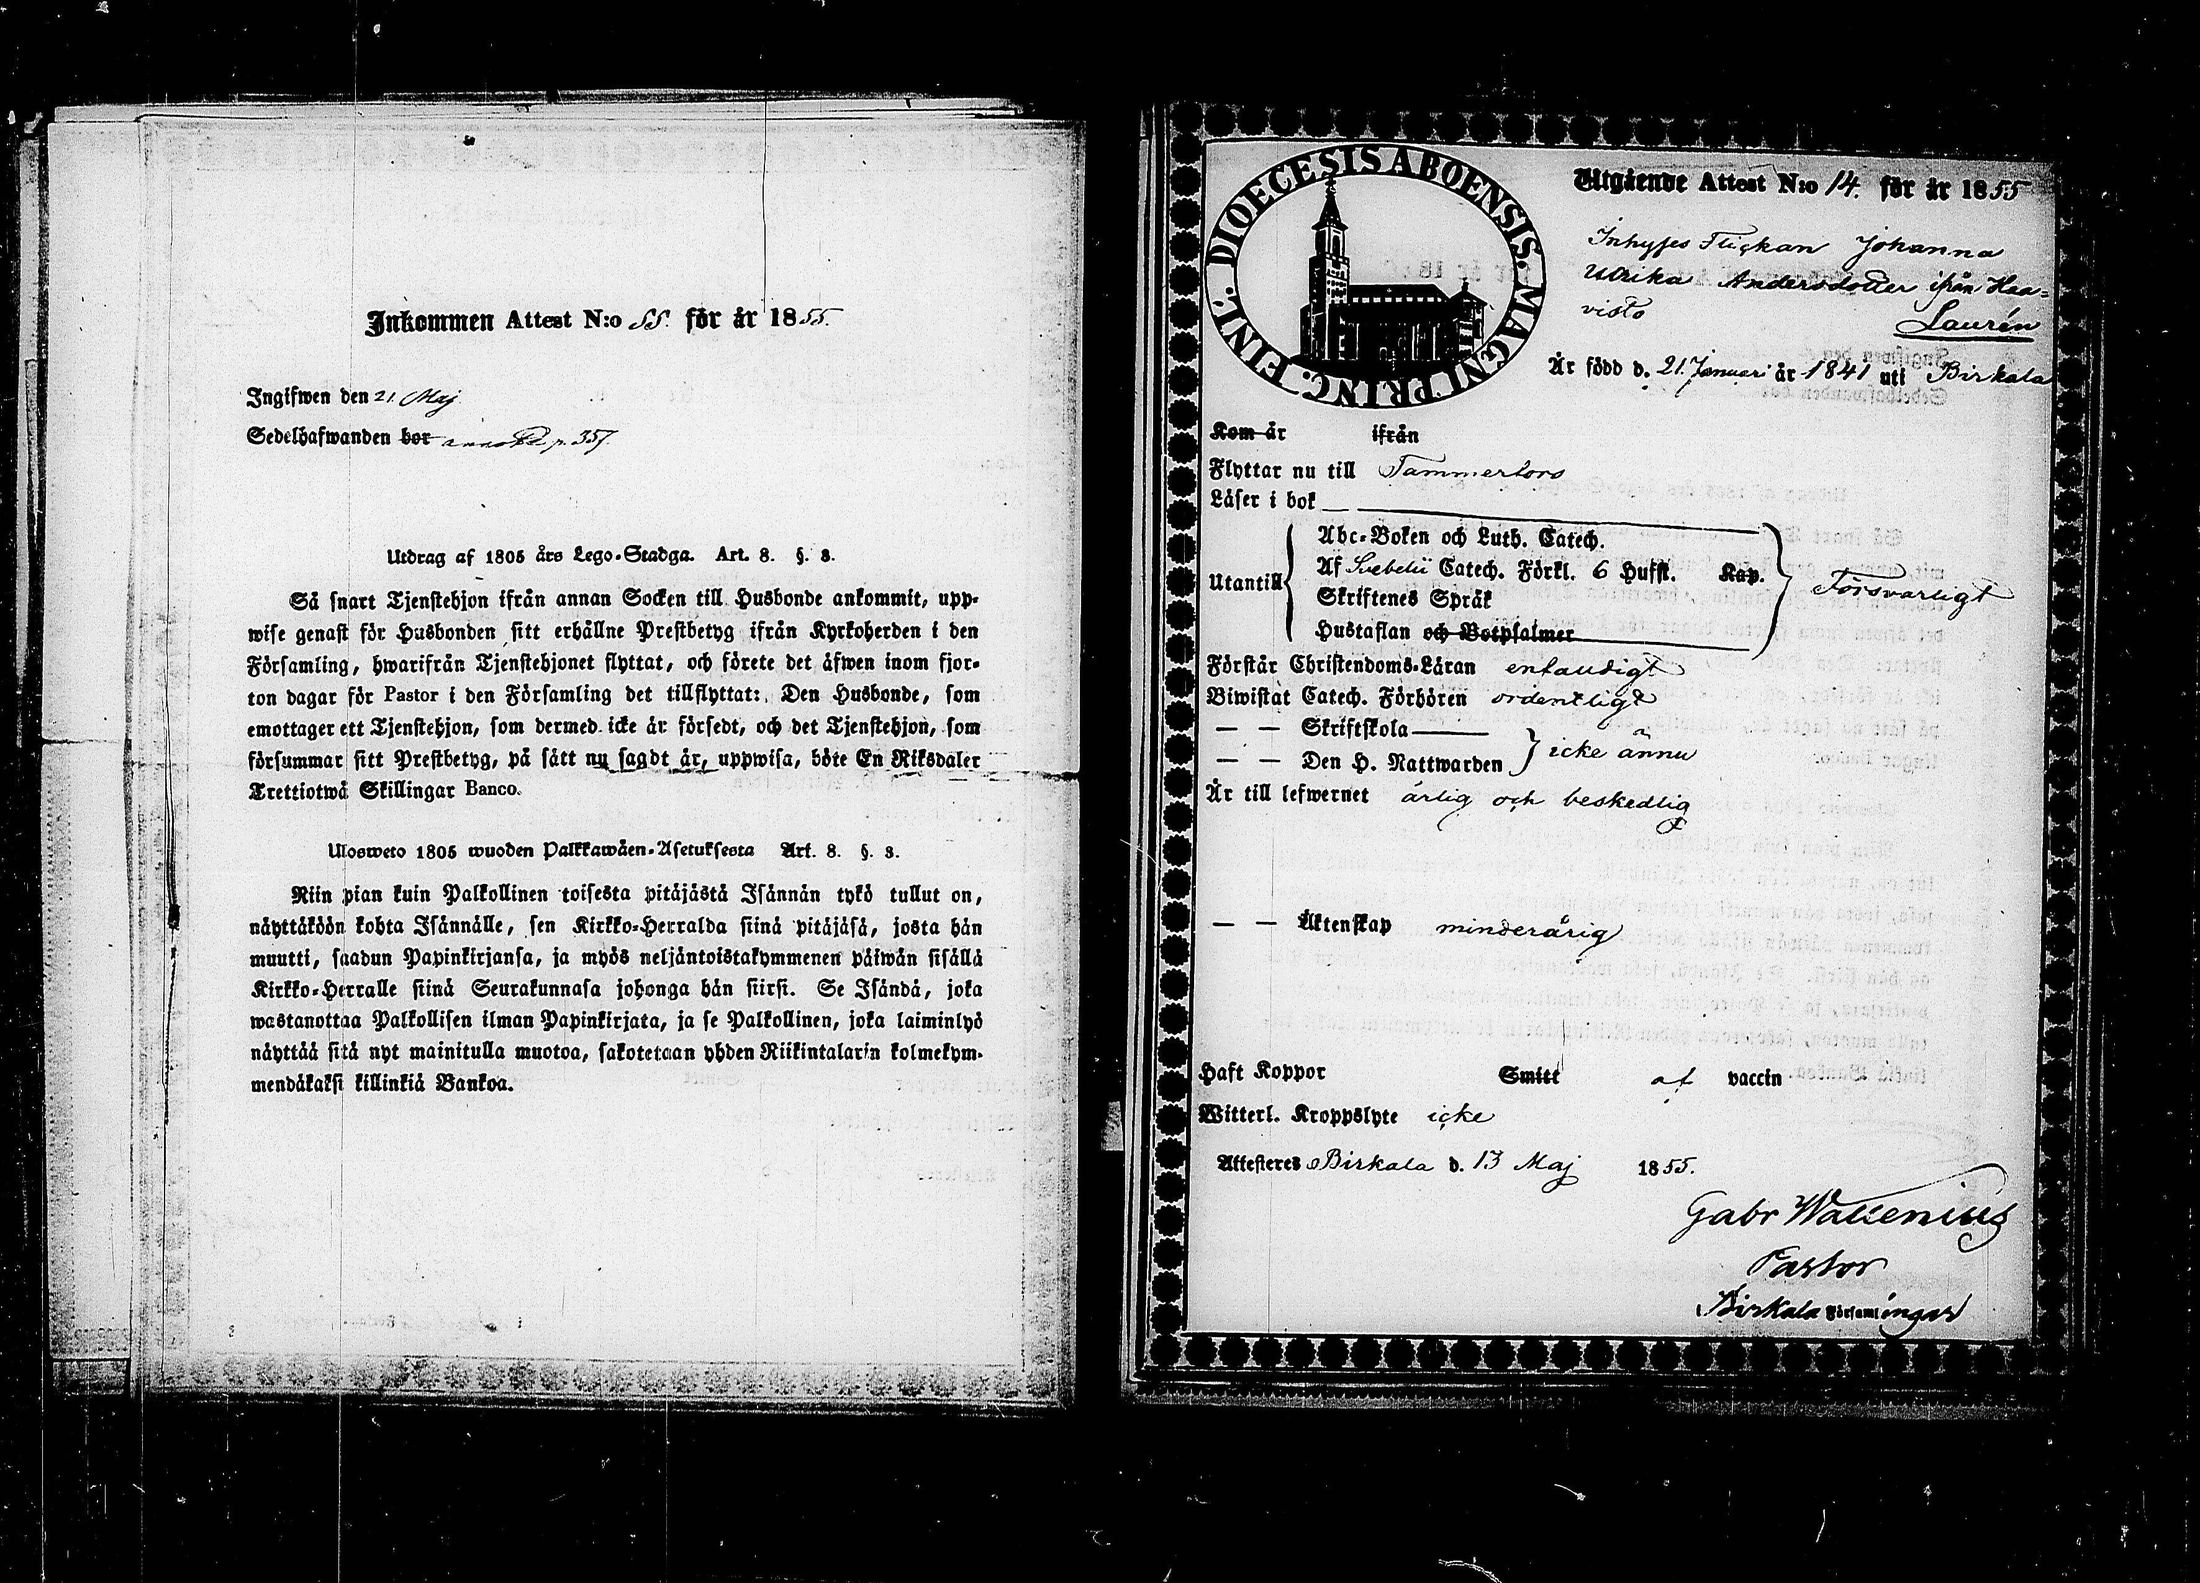 Inkommen Attest N:o 55. för år 1855.
Ingifwen den 21. Maj
Sedelhafwanden bor p. 357.
Utdrag af 1805 års Lego-Stadga. Art. 8. §. 3.
Så snart Tjenstehjon ifrån annan Socken till Husbonde ankommit, upp-
wise genast för Husbonden sitt erhållne Prestbetyg ifrån Kyrkoherden i den
Församling, hwarifrån Tjenstehjonet flyttat, och förete det äfwen inom fjor-
ton dagar för Pastor i den Församling det tillflyttat: Den Husbonde, som
emottager ett Tjenstehjon, som dermed icke är försedt, och det Tjenstehjon, som
försummar sitt Prestbetyg, på sätt nu sagdt är, uppwisa, böte En Riksdaler
Trettiotwå Skillingar Banco.
Ulosweto 1805 wuoden Palkkawäen-Asetuksesta Art. 8. §. 3.
Niin pian kuin Palkollinen toisesta pitäjästä Isännän tykö tullut on,
näyttäköön kohta Isännälle, sen Kirkko-Herralda siinä pitäjäsä, josta hän
muutti, saadun Papinkirjansa, ja myös neljäntoistakymmenen päiwän sisällä
Kirkko-Herralle siinä Seurakunnasa johonga hän siirsi. Se Isändä, joka
wastanottaa Palkollisen ilman Papinkirjata, ja se Palkollinen, joka laiminlyö
näyttää sitä nyt mainitulla muotoa, sakotetaan yhden Riikintalarin kolmekym-
mendäkaksi killinkiä Bankoa.
DIOECESIS ABOENSIS. MAGNI PRINC. FINL.
Utgående Attest N:o 14. för år 1855
Inhyses Flickan Johanna
Ulrika Andersdotter ifrån Haa-
visto Laurén
Är född d. 21. Januari år 1841 uti Birkala
Kom år ifrån
Flyttar nu till Tammerfors
Läser i bok
Abc-Boken och Luth. Catech.
Utantill Af Svebelii Catech. Förkl. 6 Hufst. Kap. Försvarligt
Skriftenes Språk
Hustaflan och Botpsalmer
Förstår Christendoms-Läran enfaldigt
Biwistat Catech. Förhören ordentligt
— — Skriftskola
— — Den H. Nattwarden icke ännu
Är till lefwernet ärlig och beskedlig
— — Äktenskap minderårig
Haft Koppor Smitt af vaccin
Witterl. Kroppslyte icke
Attesteres Birkala d. 13 Maj 1855.
Gabr Wallenius
Pastor
Birkala Församlingar